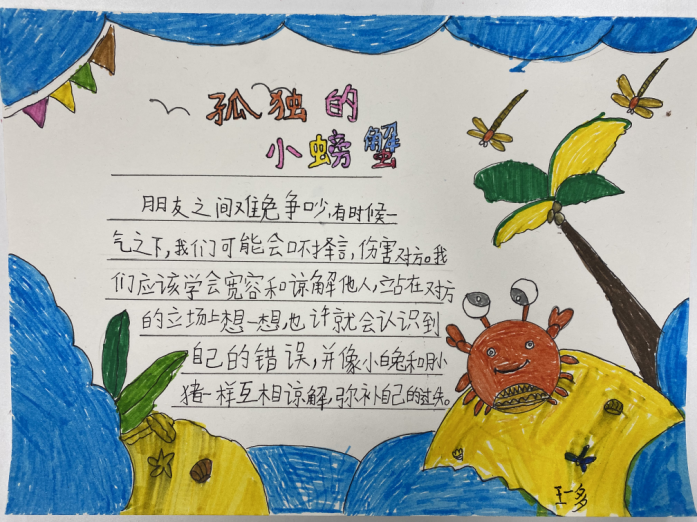 孤独的
小螃蟹
朋友之间难免争吵,有时候一
气之下,我们可能会口不择言,伤害对方。我
们应该学会宽容和谅解他人,立站在对方
的立场上想一想,也许就会认识到
自己的错误,并像小白兔和小
猪一样互相谅解,弥补自己的过失。
王一多